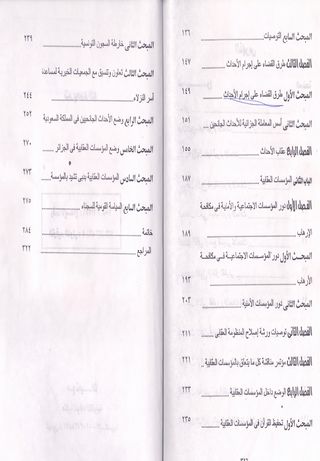 المبحث السابع التوصيات ١٣٦
الفصل الثالث طرق القضاء على إجرام الأحداث ١٤٧
المبحث الأول طرق القضاء على إجرام الأحداث ١٤٩
المبحث الثاني أسس المعاملة الجزائية للأحداث الجانحين ١٥١
الفصل الرابع عقاب الأحداث ١٥٥
الباب الثاني المؤسسات العقابية ١٨٧
الفصل الأول دور المؤسسات الاجتماعية والأمنية في مكافحة
الإرهاب ١٨٩
المبحث الأول دور المؤسسات الاجتماعية في مكافحة
الإرهاب ١٩٣
المبحث الثاني دور المؤسسات الأمنية ٢٠٣
الفصل الثاني توصيات ورشة إصلاح المنظومة العقابي ٢١١
الفصل الثالث مؤتمر مناقشة كل ما يتعلق بالمؤسسات العقابية ٢٢١
الفصل الرابع الوضع داخل المؤسسات العقابية ٢٣٣
المبحث الأول تحفيظ القرآن في المؤسسات العقابية ٢٣٥
المبحث الثاني خارطة السجون التونسية ٢٣٩
المبحث الثالث تعاون وتنسيق مع الجمعيات الخيرية لمساعدة
أسر النزلاء ٢٤٤
المبحث الرابع وضع الأحداث الجانحين في المملكة السعودية ٢٥٢
المبحث الخامس وضع المؤسسات العقابية في الجزائر ٢٧٠
المبحث السادس المؤسسات العقابية بدبي تشيد بالمؤسسة ٢٧٣
المبحث السابع السياسة القومية للسجناء ٢٧٥
خاتمة ٢٨٤
المراجع ٣٢٢